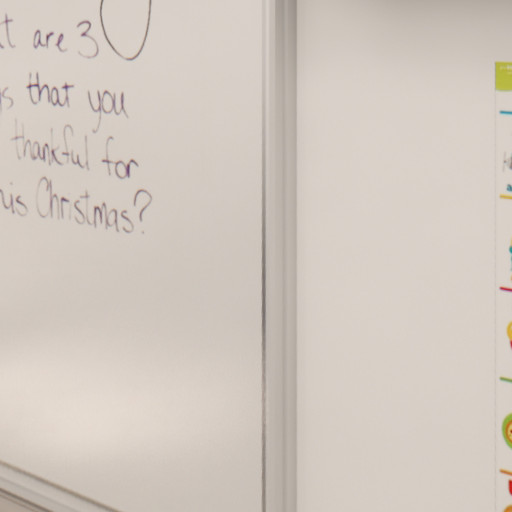 are 3
that you
thankful for
Christmas?